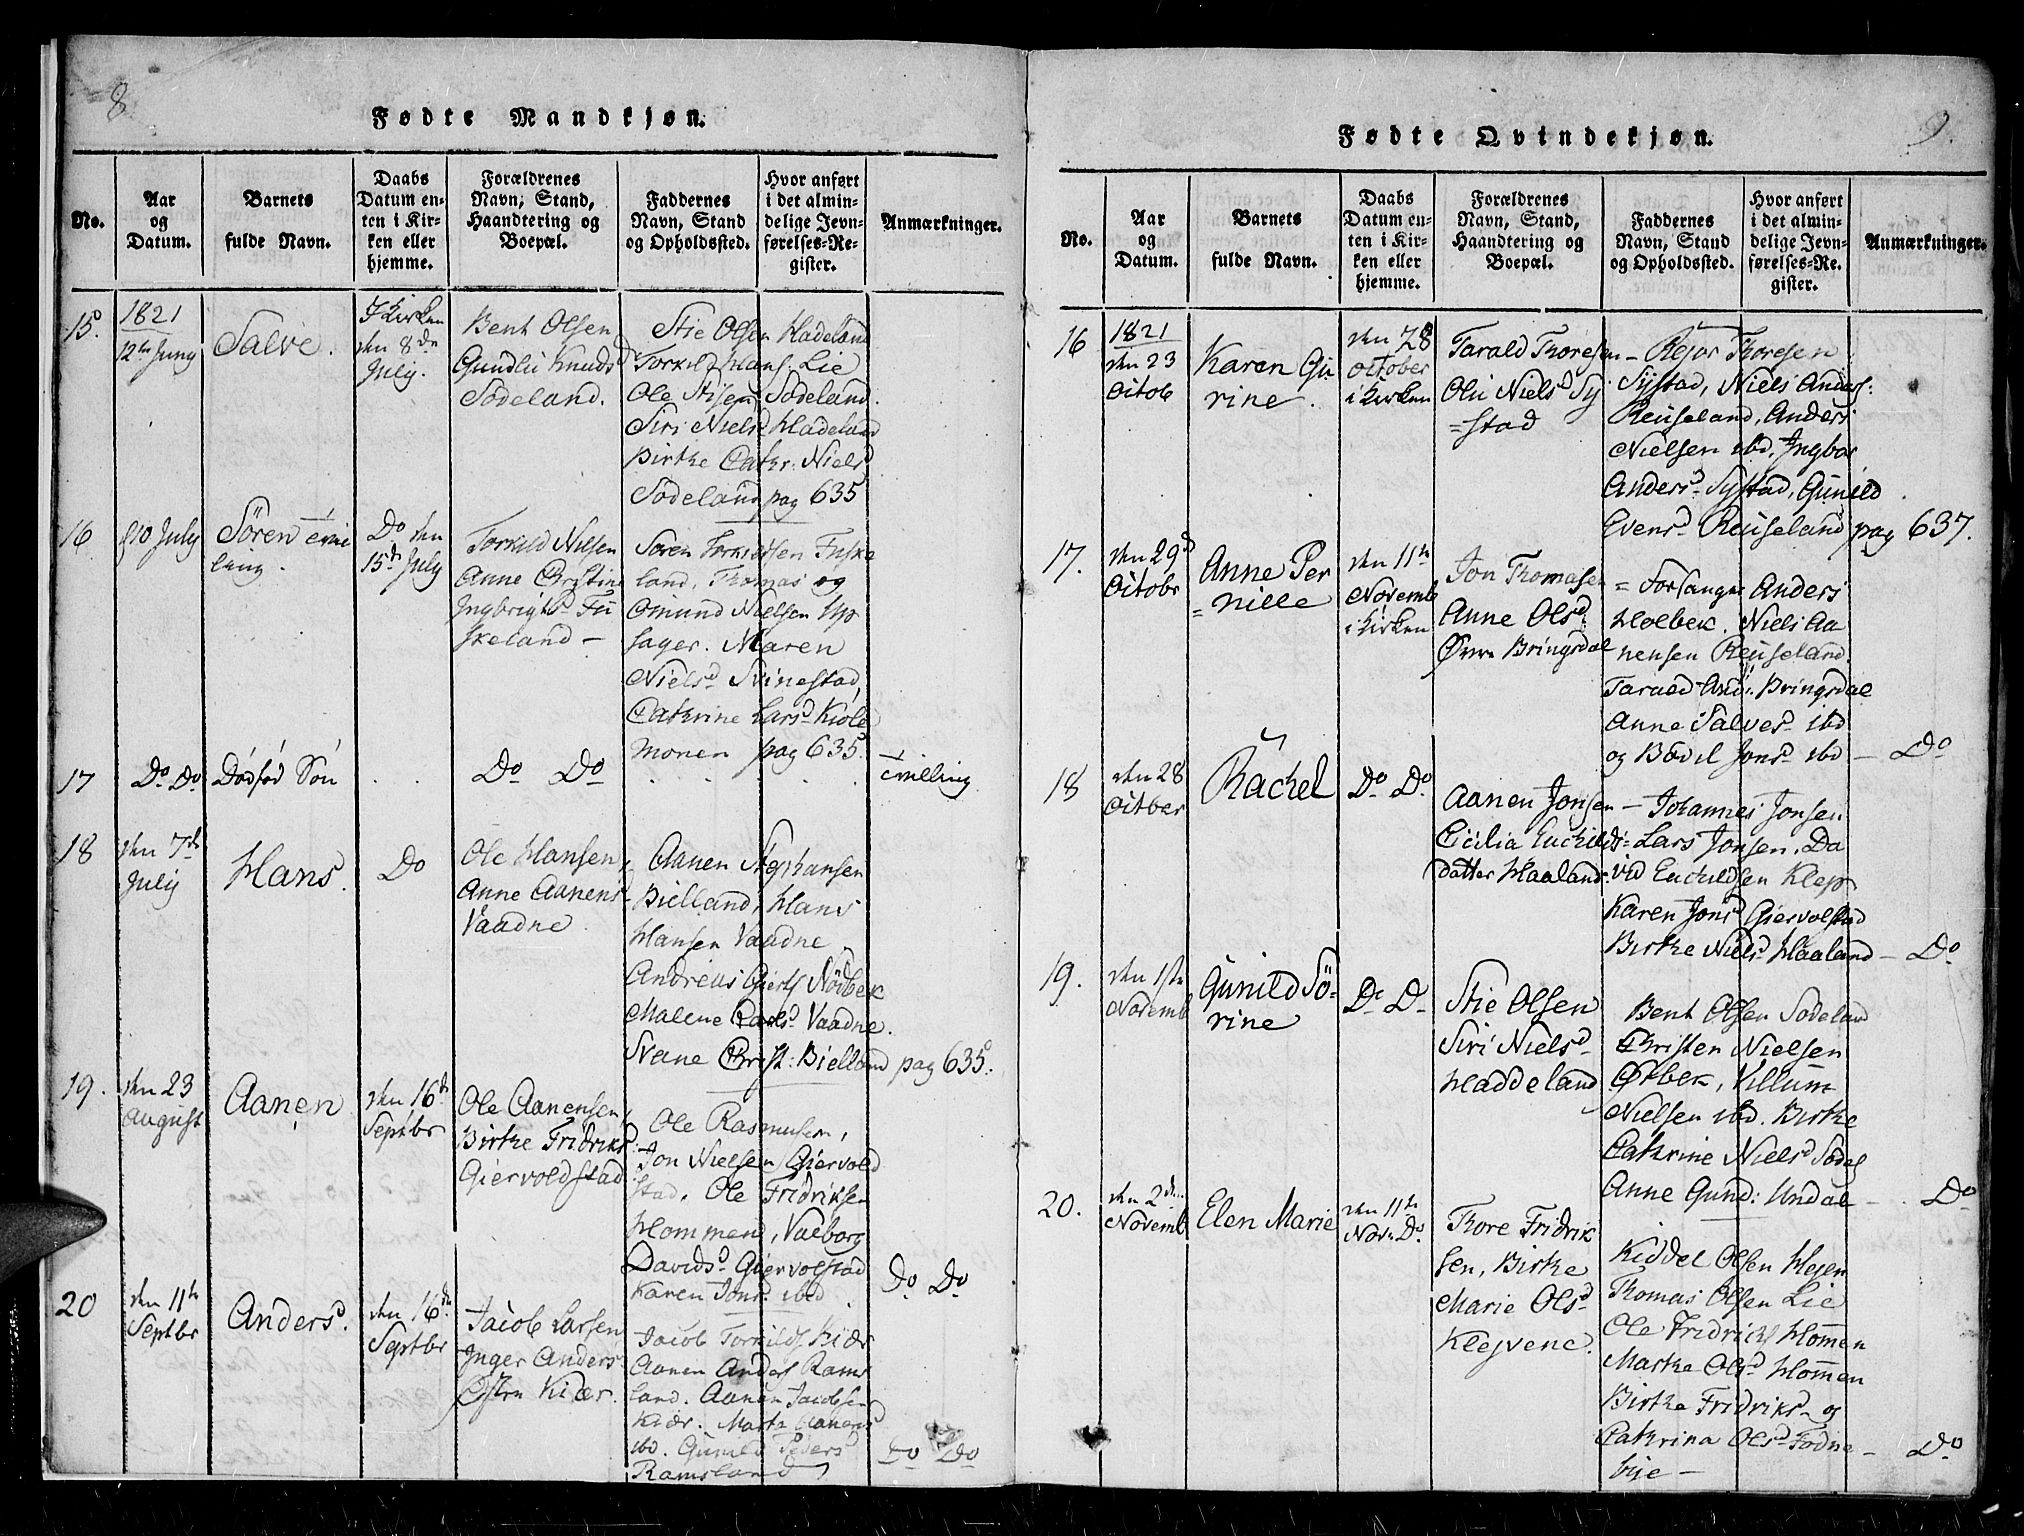 8
Fødte Mandkjøn.
No.
Aar og Datum.
Barnets fulde Navn.
Daabs Datum enten i Kirken eller hjemme.
Forældrenes Navn, Stand, Haandtering og Boepæl.
Faddernes Navn, Stand og Opholdssted.
Hvor anført i det almindelige Jevnførelses-Register.
Anmærkninger.
15.
1821
12te Juny
Salve.
I Kirken
den 8de
July.
Bent Olsen
Gundli Knudsd
Sodeland.
Stie Olsen Hadeland
Torkild Hans. Lie
Ole Stisen Sodeland.
Siri Nielsd Hadeland
Birthe Cathr: Nielsd
Sodeland pag 635
16
d 10 July
Sören
ling.
Do den
15de July
Torkild Nilsen
Anne Christine
Ingbrigtsd Fu
skeland —
Soren Torkildsen Fuske
land, Thomas og
Omund Nielsen Up
sager. Maren
Nielsd Svinestad
Cathrine Larsd Kiole
monen pag 635
17
Do Do
Dödföd Sön
Do Do
Tvilling
18
den 7de
July
Hans.
Do
Ole Hansen,
Anne Aanens
Vaadne
Aanen Stephansen
Bielland, Hans
Hansen Vaadne
Andreas Gierts Nödbek
Malene Carlsd Vaadne.
Svane Christ: Bielland pag 635.
19.
den 23
August
Aanen
den 16de
Septbr
Ole Aanensen,
Birthe Fridriks
Giervoldstad
Ole Rasmusen,
Jon Nielsen Giervold
stad, Ole Fridriksen
Hommen, Valborg
Davidsd Giervolstad
Karen Jonsd ibd
Do Do
20
den 11te
Septbr
Anders.
den 16de
Septbr
Jacob Larsen
Inger Anders
Østre Kiær.
Jacob Torkilds Kiær
Aanen Anders Rams
land. Aanen Jacobsen
Kiær. Marte Aanensd
ibd. Gunild Pedersd
Ramsland
Do Do
9.
Fødte Qvindekjøn.
No.
Aar og Datum.
Barnets fulde Navn.
Daabs Datum enten i Kirken eller hjemme.
Forældrenes Navn, Stand, Haandtering og Boepæl.
Faddernes Navn, Stand og Opholdssted.
Hvor anført i det almindelige Jevnførelses-Register.
Anmærkninger.
16
1821
den 23
Octob
Karen Gu
rine.
den 28
october
i Kirken
Tarald Thoresen
Oli Nielsd Sy
=stad
— Rejar Thoresen
Systad, Niels Anders:
Reuseland, Anders
Nielsen ibd, Ingbor
Andersd Systad, Gunild
Evensd Reuseland pag 637.
17.
den 29d
Octobr
Anne Per
=nille
den 11te
Novemb
i Kirken
Jon Thomasen
Anne Olsd
Øvre Bringsdal
= Forsanger Anders
Holbek. Niels Aa
nensen Reuseland.
Tarald And: Bringsdal
Anne Salves ibd
og Bodil Jonsd ibd — Do
18
den 28
Octber
Rachel
Do Do
Aanen Jonsen
Cicilia Enkilds=
datter Haaland
— Johannes Jonsen
Lars Jonsen, Da
vid Enkildsen Klep
Karen Jonsd Giervolstad
Birthe Nielsd Haaland — Do
19.
den 1ste
Novemb
Gunild Sö=
rine
Do Do
Stie Olsen
Siri Nielsd
Haddeland
Bent Olsen Sodeland
Christen Nielsen
Østbek, Villum
Nielsen ibd. Birthe
Cathrine Nielsd Sodel
Anne Gund: Undal — Do
20.
den 2den
Novemb
Elen Marie
den 11te
Nov. Do
Thore Fridrik
sen, Birthe
Marie Olsd
Klejvene.
Kiddel Olsen Hejen
Thomas Olsen Lie
Ole Fridrichs Hommen
Marthe Olsd Hommen
Birthe Fridriks og
Cathrina Olsd Fodne
bye — Do